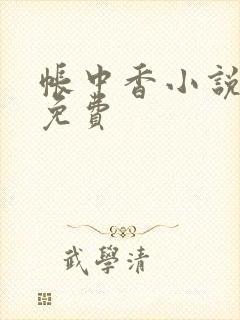 帳中香小說
免費
武學清